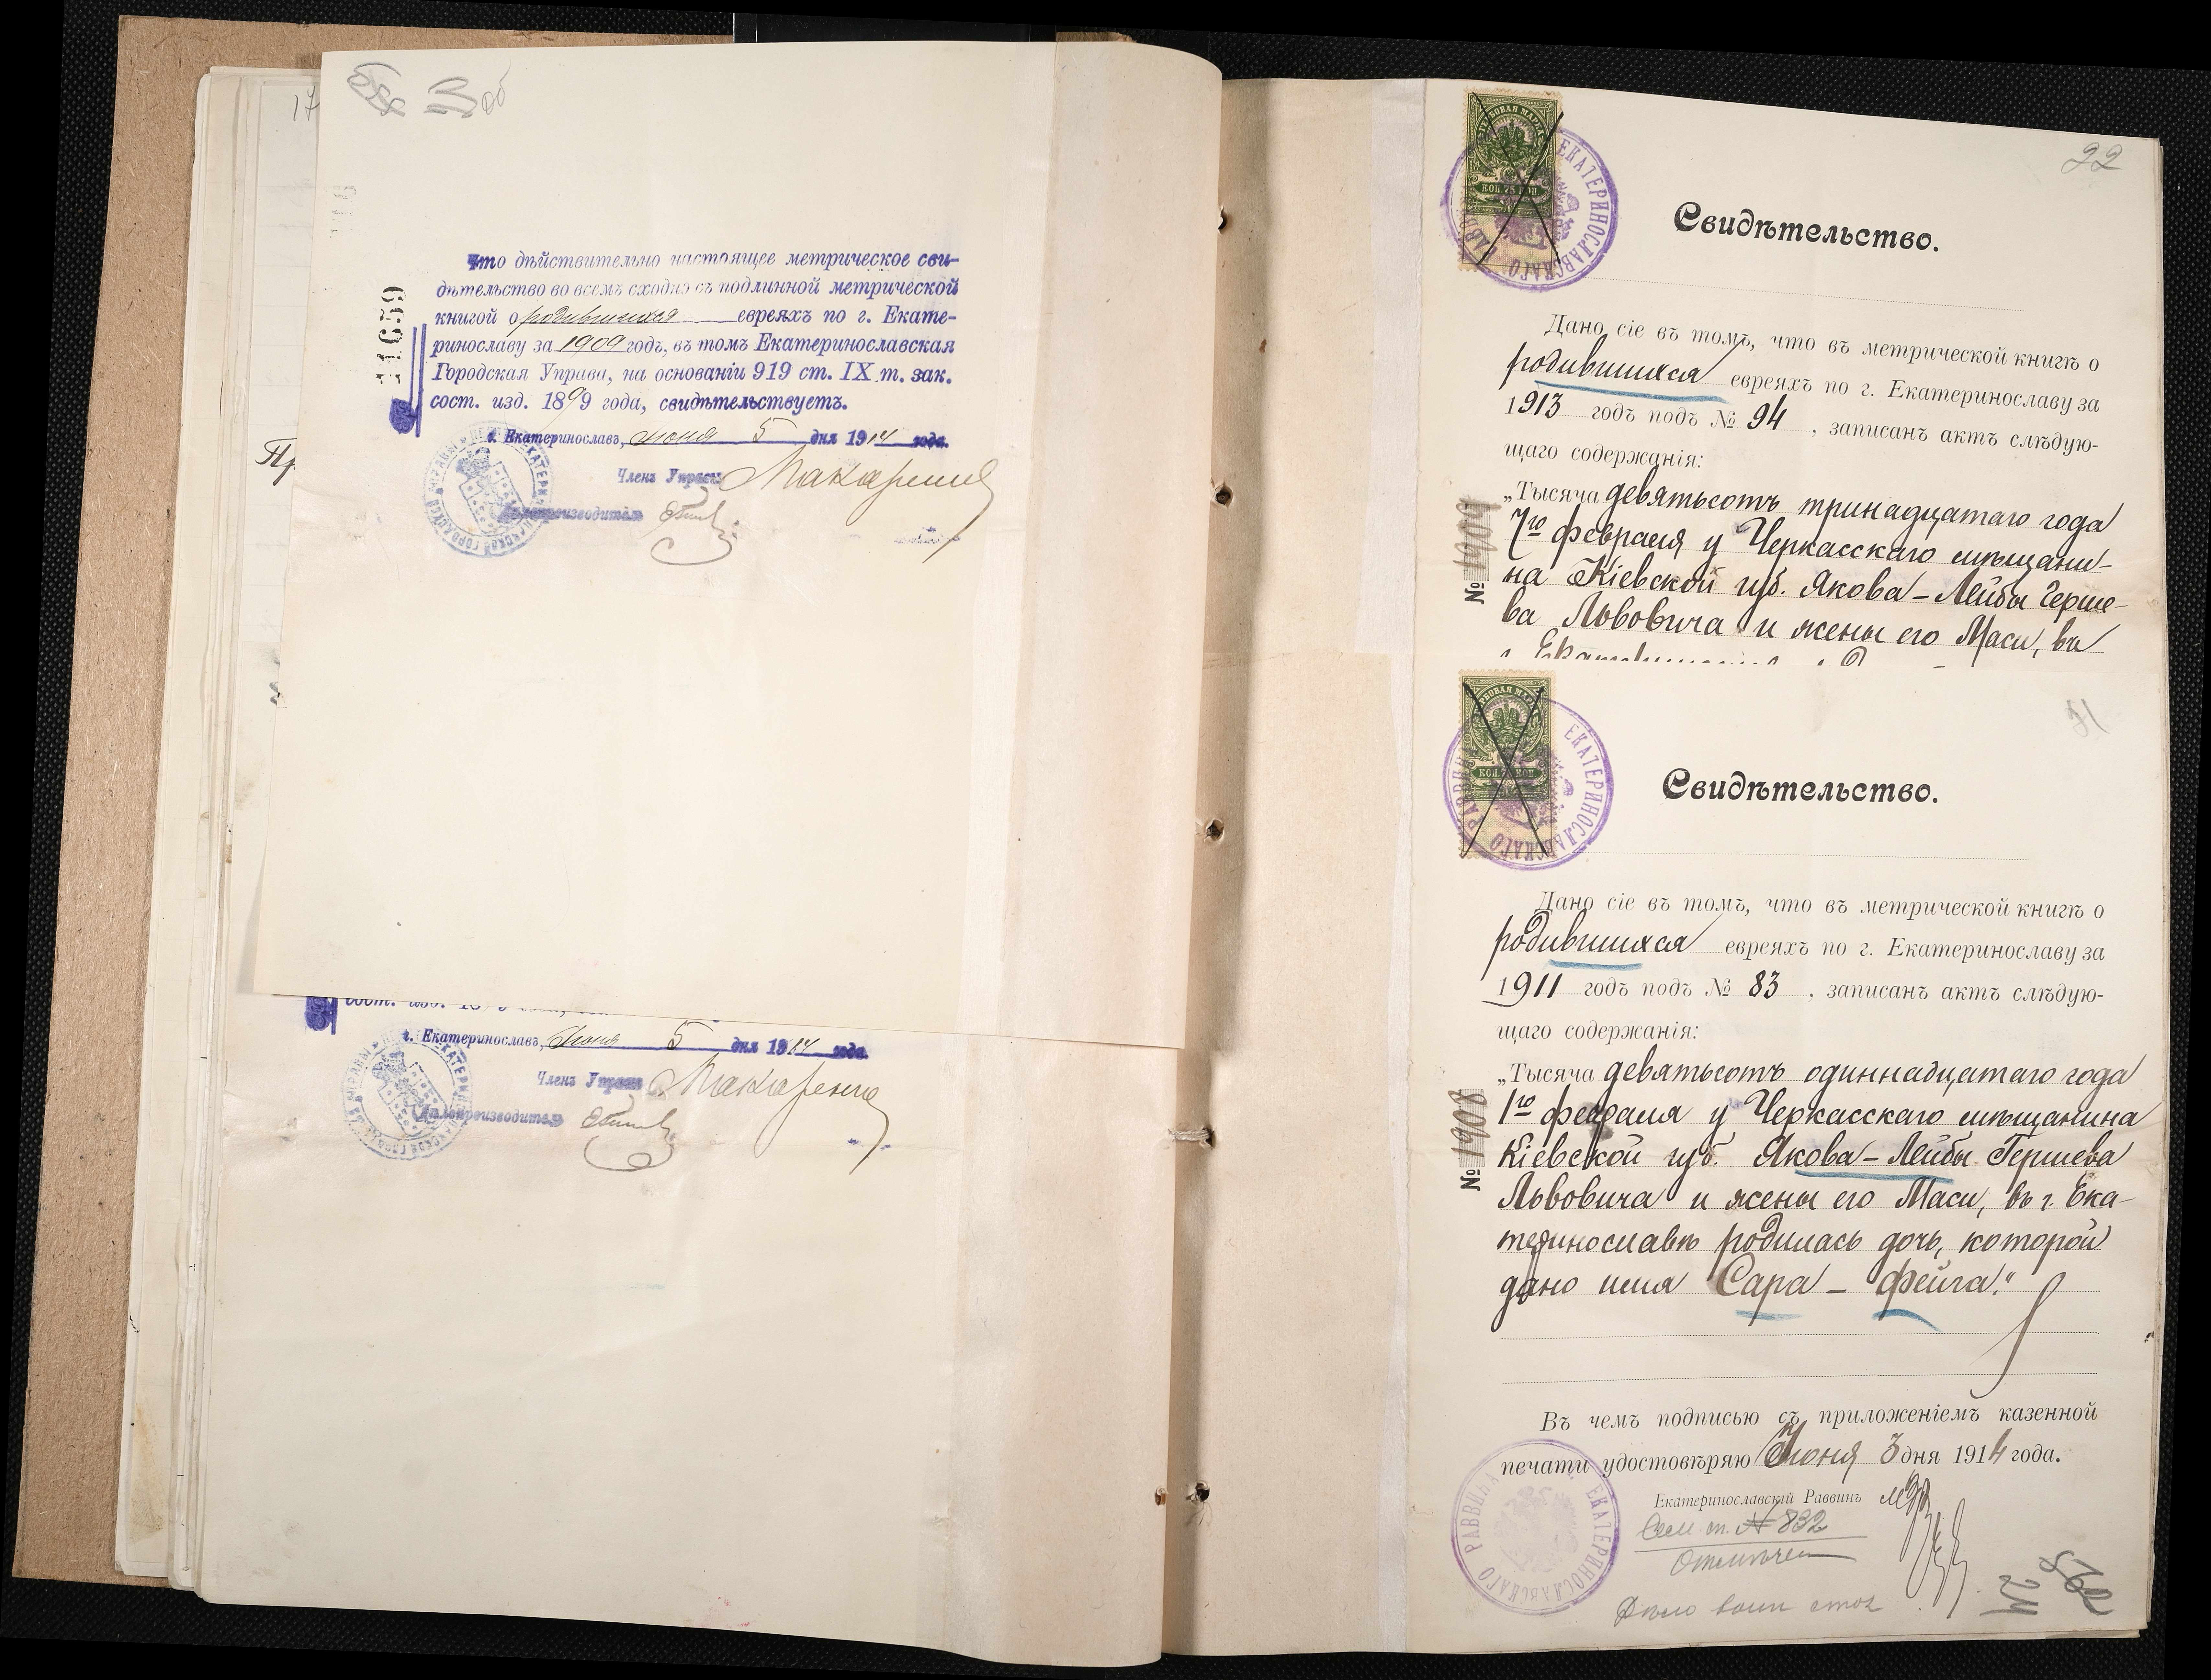 17
Пр
11639
Что дѣйствительно настоящее метрическое сви-
дѣтельство во всемъ сходно съ подлинной метрической
книгой о родившихся евреяхъ по г. Екате-
ринославу за 1909 годъ, въ томъ Екатеринославская
Городская Управа, на основаніи 919 ст. IX т. зак.
сост. изд. 1899 года, свидѣтельствуетъ.
г. Екатеринославъ, Июня 5 дня 1914 года.
Членъ Управы Макаренко
Дѣлопроизводитель
г. Екатеринославъ, Июня 5 дня 1914 года.
Членъ Управы Макаренко
Дѣлопроизводитель
22
ГЕРБОВАЯ МАРКА
КОП. 75 КОП.
ЕКАТЕРИНОСЛАВСКАГО РАВВИНА
Свидѣтельство.
Дано сіе въ томъ, что въ метрической книгѣ о
родившихся евреяхъ по г. Екатеринославу за
1913 годъ подъ № 94, записанъ актъ слѣдую-
щаго содержанія:
№ 1909
„Тысяча девятьсотъ тринадцатаго года
7го февраля у Черкасскаго мѣщани-
на Кіевской губ. Якова-Лейбы Герше-
ва Львовича и жены его Маси, въ
ГЕРБОВАЯ МАРКА
КОП. 75 КОП.
ЕКАТЕРИНОСЛАВСКАГО РАВВИНА
Свидѣтельство.
Дано сіе въ томъ, что въ метрической книгѣ о
родившихся евреяхъ по г. Екатеринославу за
1911 годъ подъ № 83, записанъ актъ слѣдую-
щаго содержанія:
№ 1908
„Тысяча девятьсотъ одиннадцатаго года
1го февраля у Черкасскаго мѣщанина
Кіевской губ. Якова-Лейбы Гершева
Львовича и жены его Маси, въ г. Ека-
теринославѣ родилась дочь, которой
дано имя Сара - Фейга."
Въ чемъ подписью съ приложеніемъ казенной
печати удостовѣряю Июня 3 дня 1914 года.
Екатеринославскій Раввинъ
ЕКАТЕРИНОСЛАВСКАГО РАВВИНА
Сем. сп. № 832
Отмѣчен
24